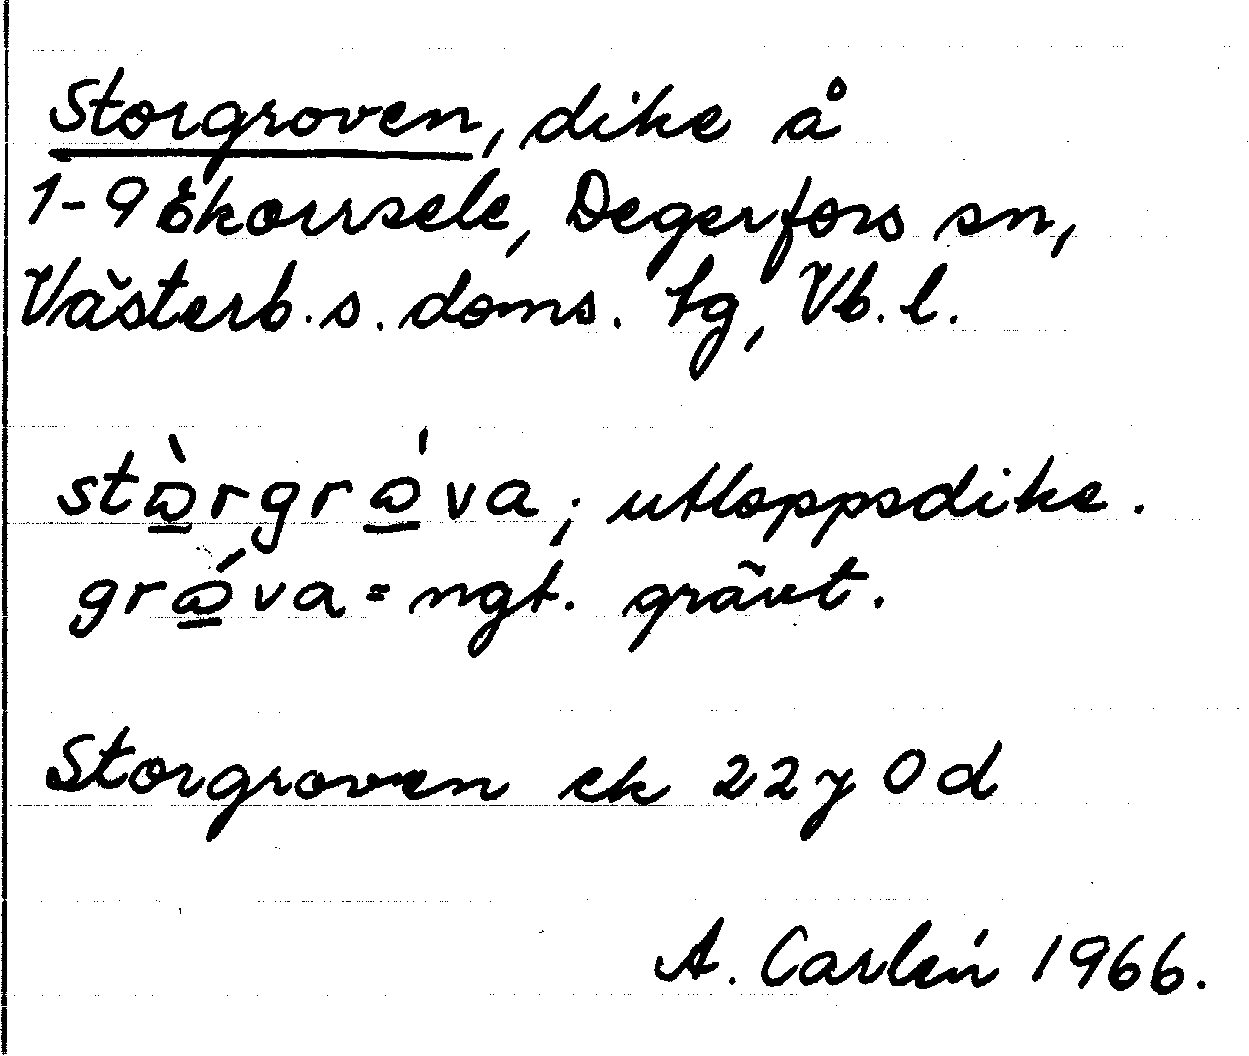 Storgroven, dike å
1-9 Ekorrsele, Degerfors sn,
Västerb. s. doms. tg, Vb. l.
stὼ̲rgrώ̲va; utloppsdike.
grώ̲va = ngt. grävt.
Storgroven ek 22y 0d
A. Carlén 1966.